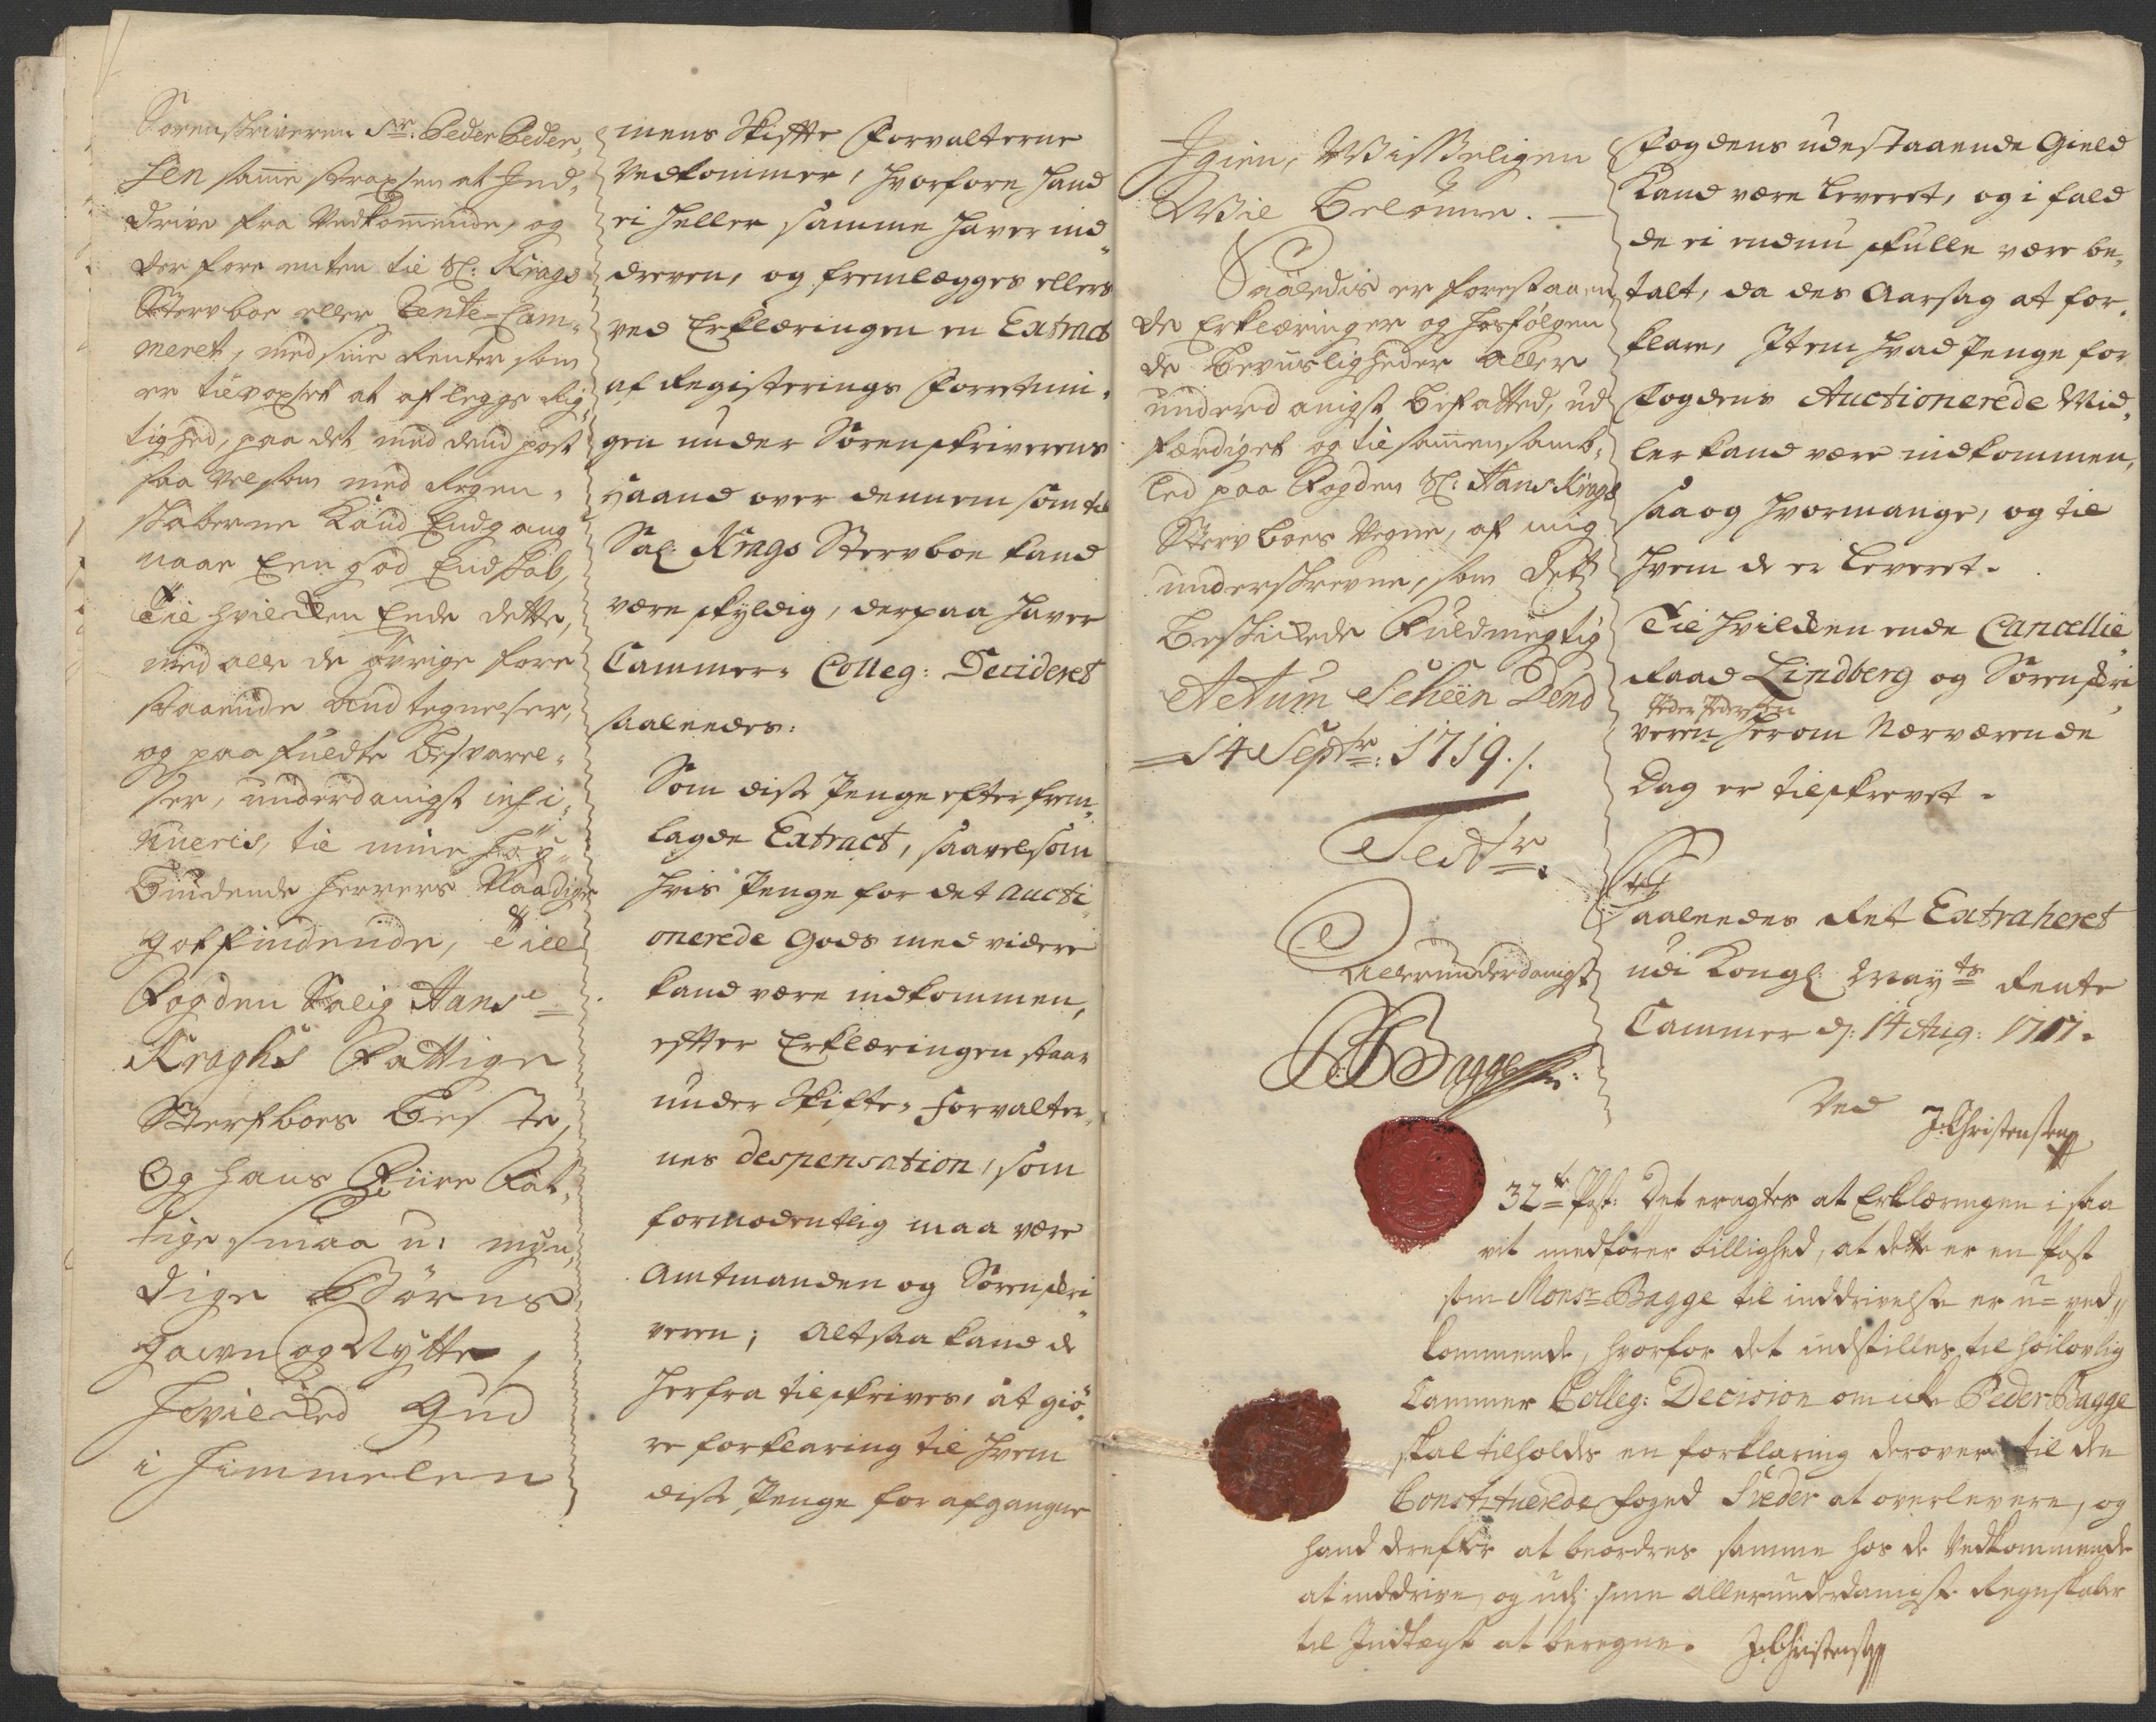 Sorenskriveren Sr: Peder Peder-
sen samme strax sen at Ind-
drive fra Vedkommende, og
derfore enten til Sl: Krags
Sterboe eller Rente-Cam-
meret, med sine Renter som
er tilvoxset at aflegge Rig-
tighed, paa det mand dend post
saa vel som med Regen-
skaberne kand Endgang
naae Een god Endskab,
Til hvilcken Ende dette,
med alle de øvrige fore
staaende Andtegnelser,
og paafuldte besvarel-
ser, underdanigst insi-
nueris, til mine høy-
biudende Herrers Naadige
gotfindende, Till
Fogden Salig Hans
Kraghs Fattige
Sterfboes beste,
Og hans Fiire Fat-
tige smaa u: myn-
dige Børns
Gavn og Nytte,
Hvilcked Gud
i Himmelen
mens Skiffte Forvalterne
vedkommer, hvorfore hand
ei heller samme haver ind-
dreven, og fremlægges ellers
ved Erklæringen en Extract
af Registerings Forretnin-
gen under Sorenskriverens
haand over dennem som til
Sal: Krags Stervboe kand
være skyldig, derpaa haver
Cammer-Colleg: Decideret
saaleedes:
Som disse Penge efter frem-
lagde Extract, saavelsom
hvis Penge for det Aucti-
onerede Gods med videre
kand være indkommen,
effter Erklæringen staar
under Skifte-Forvalter-
nes despensation, som
formodentlig maa være
Amtmanden og Sorenskri-
veren; Altsaa kand de
herfra tilskrives, at giø-
re forklaring til hvem
disse Penge for afgangne
Igien, Visseligen
Vil belønne. —
Saaledis er forestaaen-
de Erklæringer og hosfølgen
de bevisligheder aller
underdanigst befatted, ud
færdiget og tilsammensamb-
led paa Fogden Sl: Hans Krags
Sterboes Vegne, af mig
underskrevne, som dets
beskickede Fuldmegtig
Actum Scheën Dend
14 Septr: 1719 ./.
Testr.
Allerunderdanigst
PBagge
Fogdens udestaaende Gield
kand være leveret, og i fald
de ei endnu skulle være be-
talt, da des Aarsag at for-
klare, Item hvad Penge for
Fogdens Auctionerede Mid-
ler kand være indkommen,
saa og hvormange, og til
hvem de er leveret.
Til hvilcken ende Cancellie
Raad Lindberg og Sorenskri-
Peder Pedersen
veren herom Nærværende
Dag er tilskrevet.
Saaleedes Ret Extraheret
udi Kongl: Mayts Rente
Cammer d: 14 Aug: 1717.
Ved
J:Christensen
32te Post: Det eragtes at Erklæringen i saa
vit medfører billighed, at dette er en Post
som Monsr Bagge til inddrivelse er u-ved-
kommende, hvorfor det indstilles til høilovlig
Cammer Colleg: Decision om icke Peder Bagge
skal tilholdes en forklaring derover til den
Constituerede foged at overlevere, og
hand derefter at beordres samme hos de Vedkommende
at inddrive, og udj sine allerunderdanigste Regnskaber
til Indtægt at beregne. J:Christensen